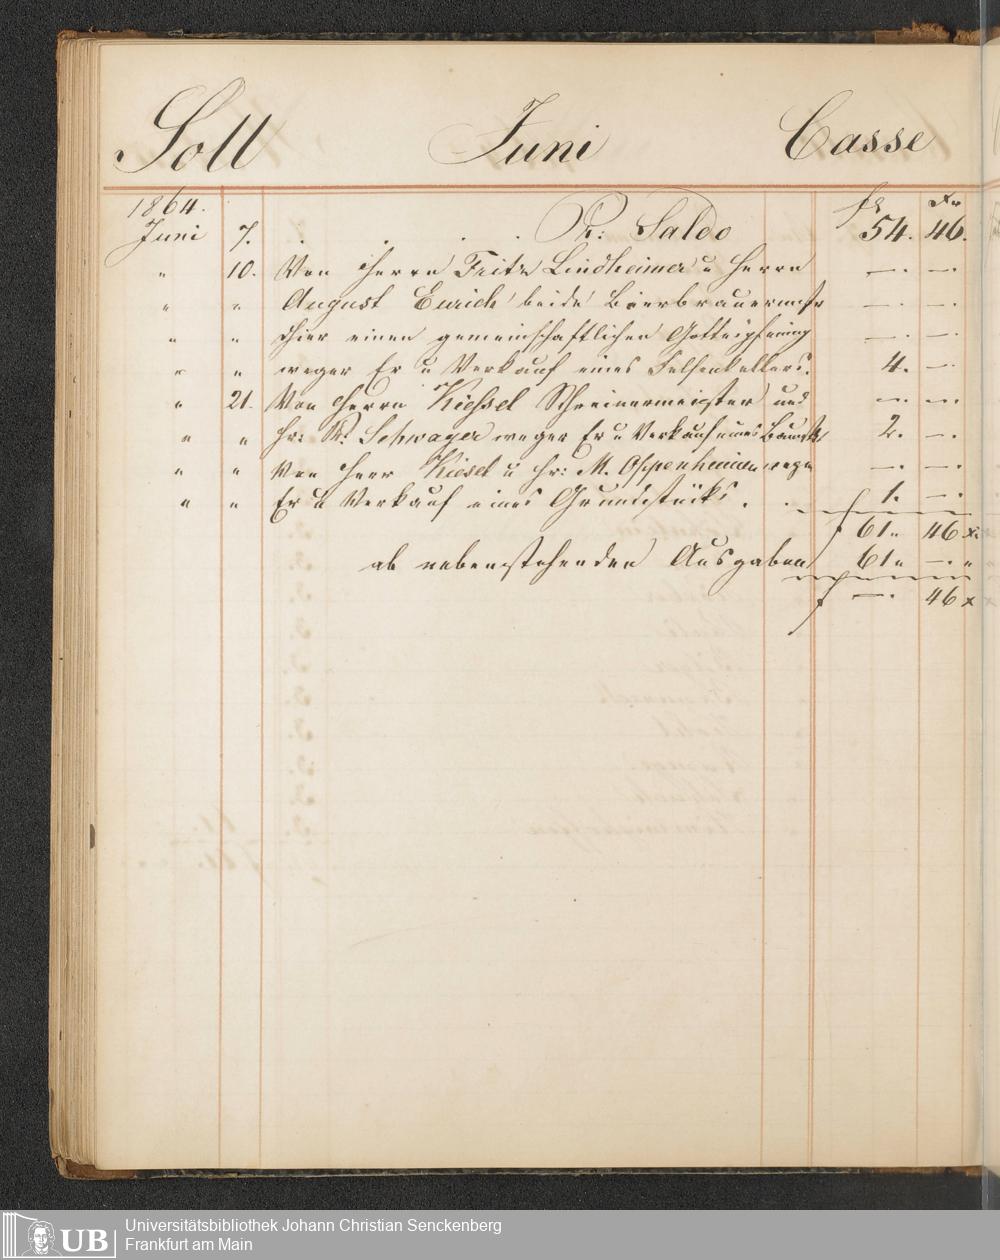 Soll Juni Casse
1864. fl xr
Juni 7. Pr: Saldo 54. 46.
" 10. Von Herrn Fritz Lindheimer u Herrn —. —.
" " August Eurich beide Bierbrauermstr —. —.
" " hier einen gemeinschaftlichen Gottespfennig —. —.
" " wegen Er u Verkauf eines Felsenkellers. 4. —.
" 21. Von Herrn Kiessel Schreinermeister und —. —.
" " Hr: W. Schwager wegen Er u Verkauf eines 2. —.
" " Von Herr Kiesel u Hr: M. Oppenheimer wegen —. —.
" " Er u Verkauf eines Grundstücks. 1. —.
f 61 " 46 x
ab nebenstehenden Ausgaben 61 " —. "
f —. 46 x
UB Universitätsbibliothek Johann Christian Senckenberg
Frankfurt am Main